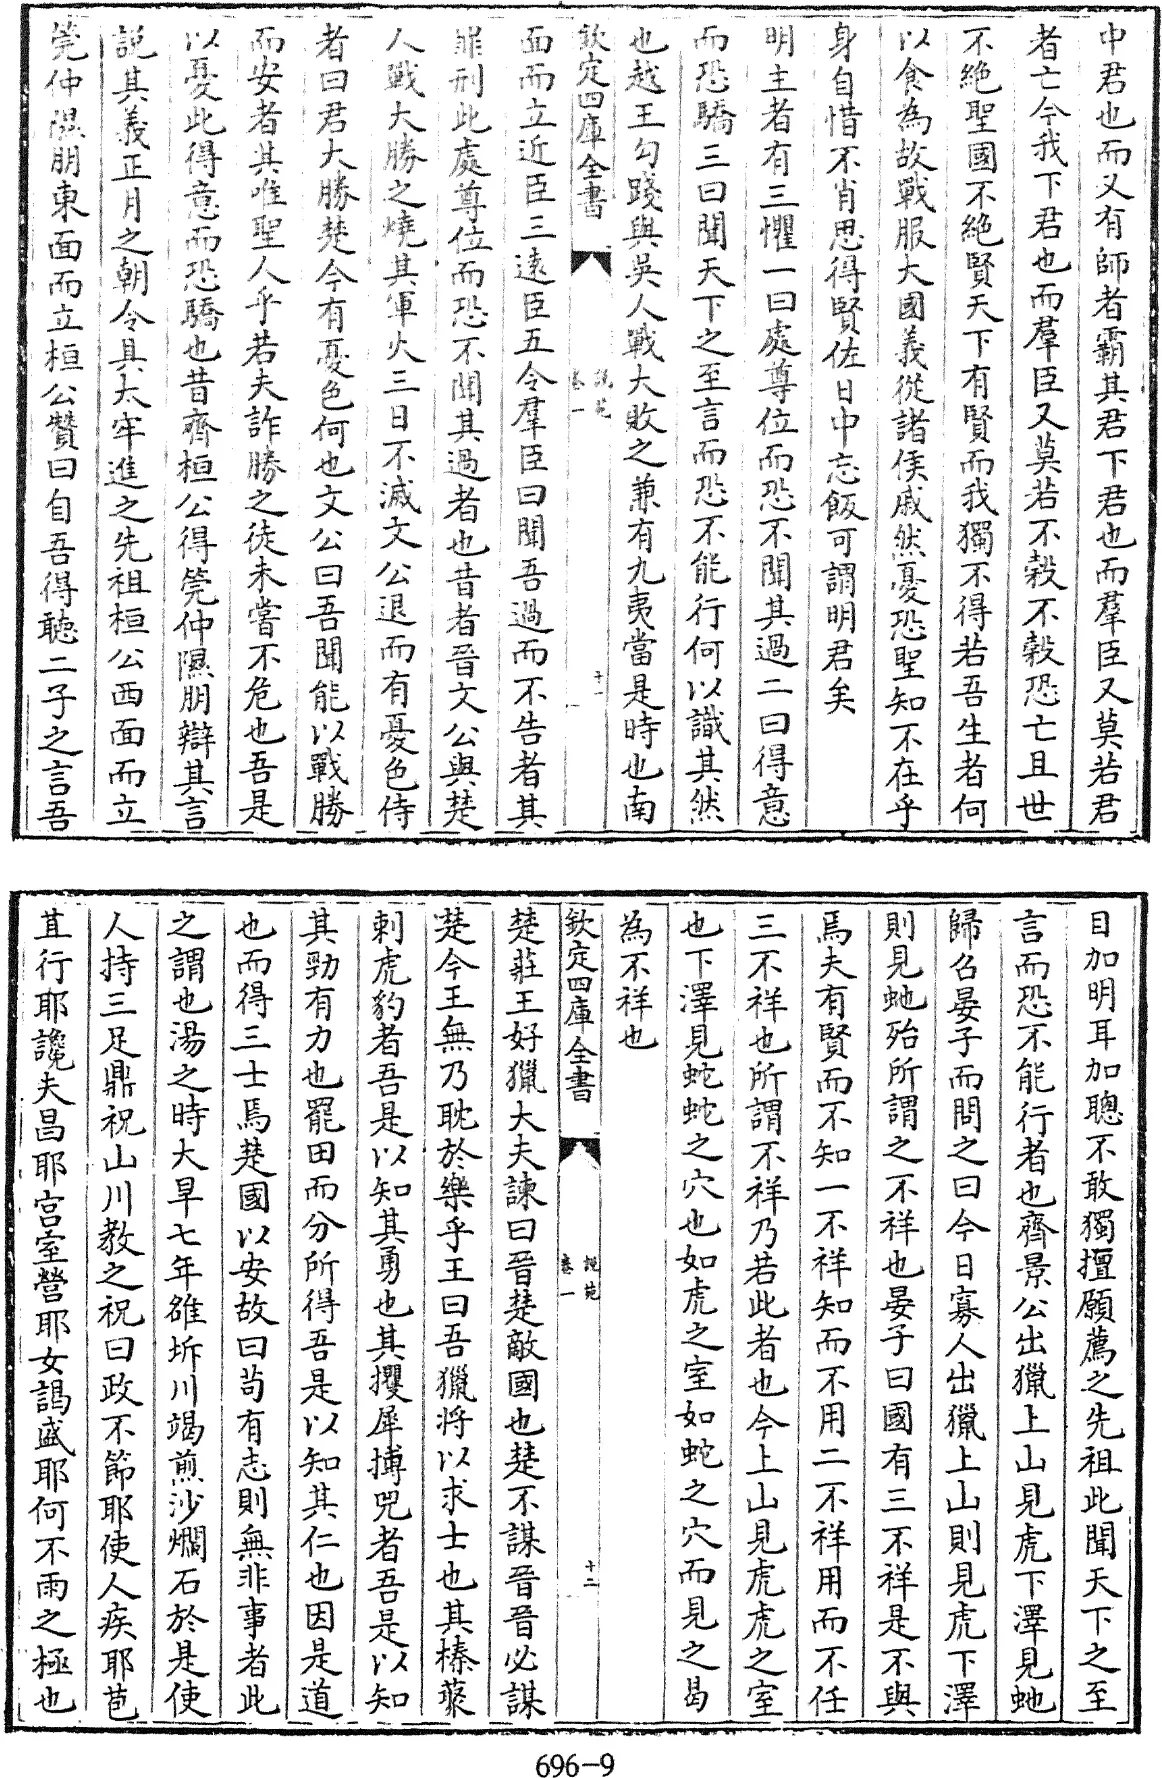 中君也而又有師者霸其君下君也而羣臣又莫若君
者亡今我下君也而羣臣又莫若不榖不榖恐亡且世
不絶聖國不絶賢天下有賢而我獨不得若吾生者何
以食為故戰服大國義從諸侯戚然憂恐聖知不在乎
身自惜不肖思得賢佐日中忘飯可謂明君矣
明主者有三懼一曰處尊位而恐不聞其過二曰得意
而恐驕三曰聞天下之至言而恐不能行何以識其然
也越王勾踐與吳人戰大敗之兼有九夷當是時也南
欽定四庫全書
說苑
卷一
十一
面而立近臣三遠臣五令羣臣曰聞吾過而不告者其
罪刑此處尊位而恐不聞其過者也昔者晉文公與楚
人戰大勝之燒其軍火三日不滅文公退而有憂色侍
者曰君大勝楚今有憂色何也文公曰吾聞能以戰勝
而安者其唯聖人乎若夫詐勝之徒未嘗不危也吾是
以憂此得意而恐驕也昔齊桓公得筦仲隰朋辯其言
說其義正月之朝令具太牢進之先祖桓公西面而立
筦仲隰朋東面而立桓公贊曰自吾得聽二子之言吾
目加明耳加聰不敢獨擅願薦之先祖此聞天下之至
言而恐不能行者也齊景公出獵上山見虎下澤見虵
歸召晏子而問之曰今日寡人出獵上山則見虎下澤
則見虵殆所謂之不祥也晏子曰國有三不祥是不與
焉夫有賢而不知一不祥知而不用二不祥用而不任
三不祥也所謂不祥乃若此者也今上山見虎虎之室
也下澤見蛇蛇之穴也如虎之室如蛇之穴而見之曷
為不祥也
欽定四庫全書
說苑
卷一
十二
楚莊王好獵大夫諫曰晉楚敵國也楚不謀晉晉必謀
楚今王無乃耽於樂乎王曰吾獵將以求士也其榛藂
刺虎豹者吾是以知其勇也其攫犀搏兕者吾是以知
其勁有力也罷田而分所得吾是以知其仁也因是道
也而得三士焉楚國以安故曰苟有志則無非事者此
之謂也湯之時大旱七年雒坼川竭煎沙爛石於是使
人持三足鼎祝山川教之祝曰政不節耶使人疾耶苞
苴行耶讒夫昌耶宫室營耶女謁盛耶何不雨之極也
696-9